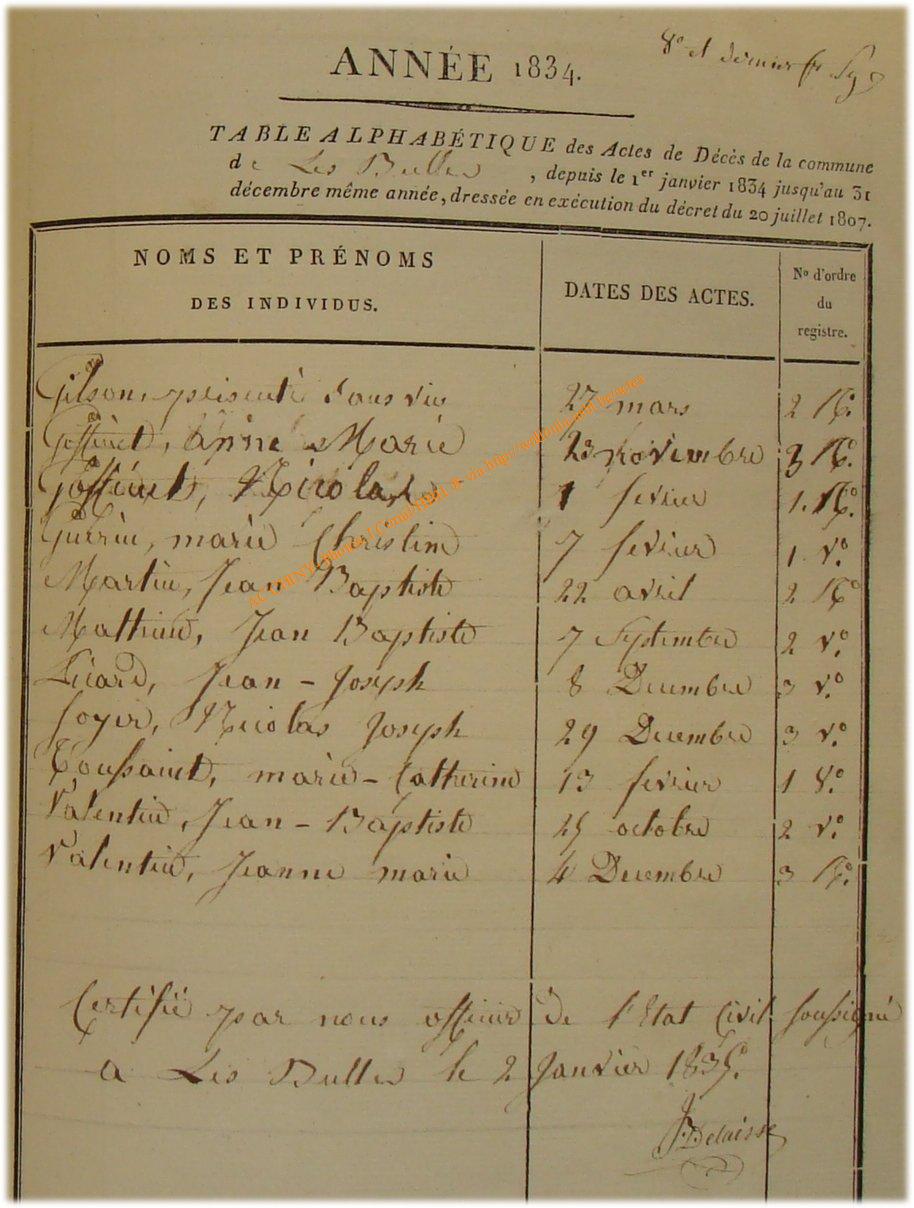 8e et dernier
ANNÉE 1834.
TABLE ALPHABÉTIQUE des Actes de Décès de la commune
de Les Bulles , depuis le 1er janvier 1834 jusqu'au 31
décembre même année, dressée en exécution du décret du 20 juillet 1807.
NOMS ET PRÉNOMS DES INDIVIDUS. DATES DES ACTES. No d'ordre du registre.
Gilson, présenté sans vie 27 mars 2 Ro.
Goffinet, anne Marie 23 novembre 3 Ro.
Goffinet, Nicolas 1 fevrier 1. Ro.
Guérin, marie Christine 7 fevrier 1 vo.
Martin, Jean Baptiste 22 avril 2 Ro
Mathieu, Jean Baptiste 7 Septembre 2 vo.
Picard, Jean - Joseph 8 Decembre 3 vo.
Soyer, Nicolas Joseph 29 Decembre 3 vo.
Toussaint, marie - Catherine 13 fevrier 1 vo.
Valentin, Jean - Baptiste 25 octobre 2 vo.
Valentin, Jeanne marie 4 Decembre 3 Ro.
Certifié par nous officier de l'Etat Civil soussigné
a Les Bulles le 2 Janvier 1835.
JDelaisse